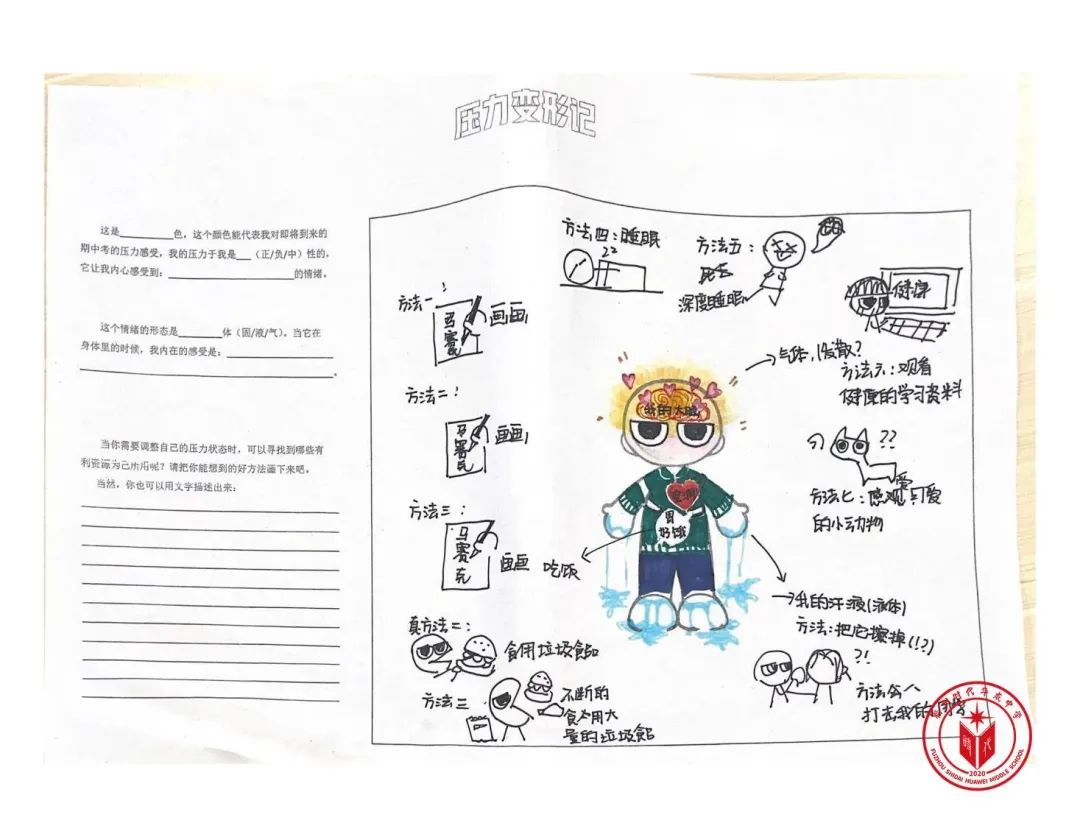 压力变形记
这是________色，这个颜色能代表我对即将到来的
期中考的压力感受，我的压力于我是__（正/负/中）性的，
它让我内心感受到：__________________的情绪。
这个情绪的形态是______体（固/液/气）。当它在
身体里的时候，我内在的感受是：________________
____________________________________。
当你需要调整自己的压力状态时，可以寻找到哪些有
利资源为己所用呢？请把你能想到的好方法画下来吧，
当然，你也可以用文字描述出来：
方法一：
马赛克
画画
方法二：
马赛克
画画
方法三：
马赛克
画画
吃饭
真方法二：
食用垃圾食品
方法三
不断的
食用大
量的垃圾食品
方法四：睡眠
zz
方法五：
深度睡眠
健康
气体，
方法六：观看
健康的学习资料
??
方法七：
可爱
的小动物
我的大脑
胃
好饿
我的汗液(液体)
方法：把它擦掉(!?)
?!
方法
打击我的同学
FUZHOU SHIDAI HUAWEI MIDDLE SCHOOL
2020